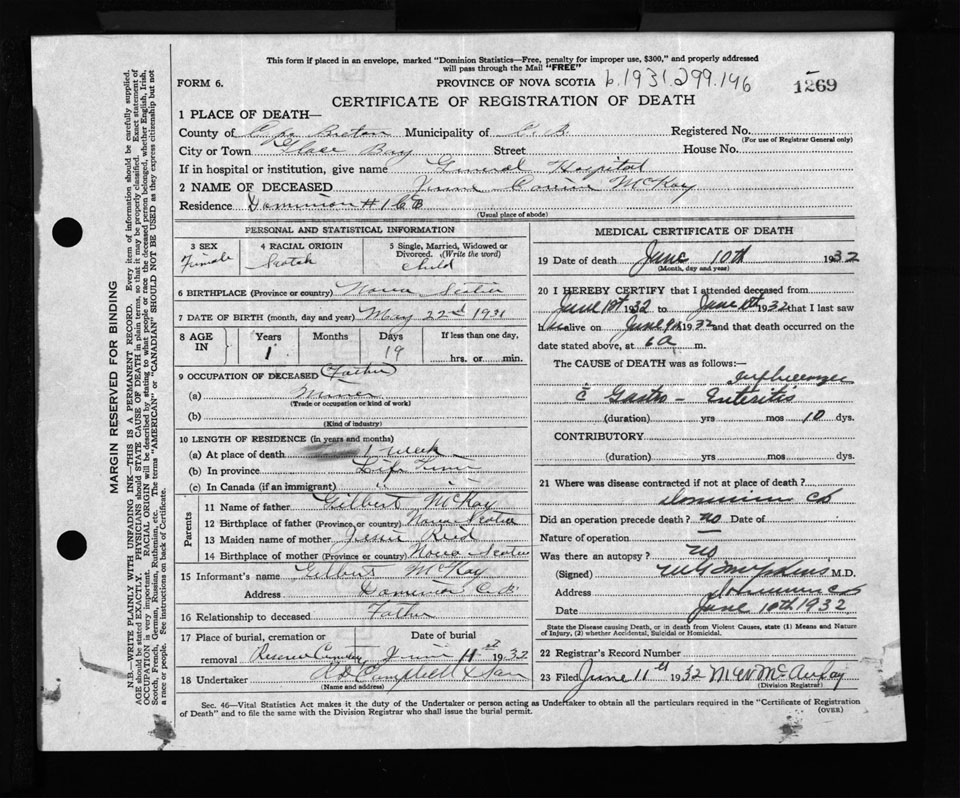 This form if placed in an envelope, marked "Dominion Statistics—Free, penalty for improper use, $300," and properly addressed
will pass through the Mail "FREE"
FORM 6. PROVINCE OF NOVA SCOTIA b.1931.299.146 1269
CERTIFICATE OF REGISTRATION OF DEATH
1 PLACE OF DEATH—
County of Cape Breton Municipality of C. B. Registered No.
(For use of Registrar General only)
City or Town Glace Bay Street House No.
If in hospital or institution, give name General Hospital
2 NAME OF DECEASED Jessie McKay
Residence Dominion #1 CB
(Usual place of abode)
PERSONAL AND STATISTICAL INFORMATION
3 SEX 4 RACIAL ORIGIN 5 Single, Married, Widowed or Divorced. (Write the word)
Female Scotch Child
6 BIRTHPLACE (Province or country) Nova Scotia
7 DATE OF BIRTH (month, day and year) May 22nd 1931
8 AGE IN Years Months Days If less than one day,
1 19 hrs. or min.
9 OCCUPATION OF DECEASED Father
(a) Miner
(Trade or occupation or kind of work)
(b)
(Kind of industry)
10 LENGTH OF RESIDENCE (in years and months)
(a) At place of death 1 week
(b) In province Life Time
(c) In Canada (if an immigrant) " "
Parents
11 Name of father Gilbert McKay
12 Birthplace of father (Province or country) Nova Scotia
13 Maiden name of mother Jessie Reid
14 Birthplace of mother (Province or country) Nova Scotia
15 Informant's name Gilbert McKay
Address Dominion C.B.
16 Relationship to deceased Father
17 Place of burial, cremation or Date of burial
removal Reserve Cemetery June 11st 1932
18 Undertaker Campbell & Son
(Name and address)
MEDICAL CERTIFICATE OF DEATH
19 Date of death June 10th 1932
(Month, day and year)
20 I HEREBY CERTIFY that I attended deceased from
June 1st 1932 to June 10th 1932 that I last saw
h alive on June 9th 1932 and that death occurred on the
date stated above, at 6 a m.
The CAUSE OF DEATH was as follows:—
Influenza
c̄ Gastro - Enteritis
(duration) yrs mos 10 dys.
CONTRIBUTORY
(duration) yrs mos dys.
21 Where was disease contracted if not at place of death?
Dominion CB
Did an operation precede death? no Date of
Nature of operation
Was there an autopsy? no
(Signed) M.D.
Address Dominion CB
Date June 10th 1932
State the Disease causing Death, or in death from Violent Causes, state (1) Means and Nature of Injury, (2) whether Accidental, Suicidal or Homicidal.
22 Registrar's Record Number
23 Filed June 11th 1932
(Division Registrar)
Sec. 46—Vital Statistics Act makes it the duty of the Undertaker or person acting as Undertaker to obtain all the particulars required in the "Certificate of Registration
of Death" and to file the same with the Division Registrar who shall issue the burial permit. (OVER)
MARGIN RESERVED FOR BINDING
N.B.—WRITE PLAINLY WITH UNFADING INK—THIS IS A PERMANENT RECORD. Every item of information should be carefully supplied.
AGE should be stated EXACTLY. PHYSICIANS should STATE CAUSE OF DEATH in plain terms, so that it may be properly classified. Exact statement of
OCCUPATION is very important. RACIAL ORIGIN will be described by stating to what people or race the deceased person belonged, whether English, Irish,
Scotch, French, German, Russian, Ruthenian, etc. The terms "AMERICAN" or "CANADIAN" SHOULD NOT BE USED as they express citizenship but not
a race or people. See instructions on back of Certificate.